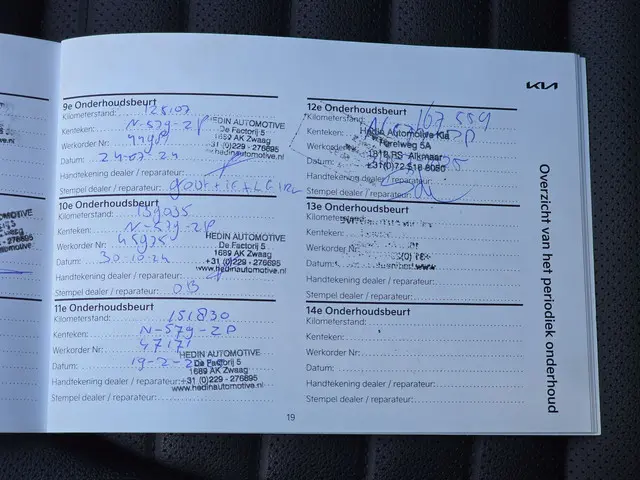 KIA
9e Onderhoudsbeurt
Kilometerstand: 125107
Kenteken: N-579-ZP
Werkorder Nr:
Datum: 24-07-24
Handtekening dealer / reparateur:
Stempel dealer / reparateur:
HEDIN AUTOMOTIVE
De Factorij 5
1689 AK Zwaag
+31 (0)229 - 276895
www.hedinautomotive.nl
10e Onderhoudsbeurt
Kilometerstand: 139035
Kenteken: N-579-ZP
Werkorder Nr: 45975
Datum: 30-10-24
Handtekening dealer / reparateur:
Stempel dealer / reparateur: OB
HEDIN AUTOMOTIVE
De Factorij 5
1689 AK Zwaag
+31 (0)229 - 276895
www.hedinautomotive.nl
11e Onderhoudsbeurt
Kilometerstand: 151830
Kenteken: N-579-ZP
Werkorder Nr: 47171
Datum: 19-2-25
Handtekening dealer / reparateur:
Stempel dealer / reparateur:
HEDIN AUTOMOTIVE
De Factorij 5
1689 AK Zwaag
+31 (0)229 - 276895
www.hedinautomotive.nl
12e Onderhoudsbeurt
Kilometerstand: 167559
Kenteken:
Werkorder Nr:
Datum:
Handtekening dealer / reparateur:
Stempel dealer / reparateur:
Hedin Automotive Kia
Torelweg 5A
1812 RS Alkmaar
+31(0)72 518 8080
13e Onderhoudsbeurt
Kilometerstand:
Kenteken:
Werkorder Nr:
Datum:
Handtekening dealer / reparateur:
Stempel dealer / reparateur:
14e Onderhoudsbeurt
Kilometerstand:
Kenteken:
Werkorder Nr:
Datum:
Handtekening dealer / reparateur:
Stempel dealer / reparateur:
Overzicht van het periodiek onderhoud
19